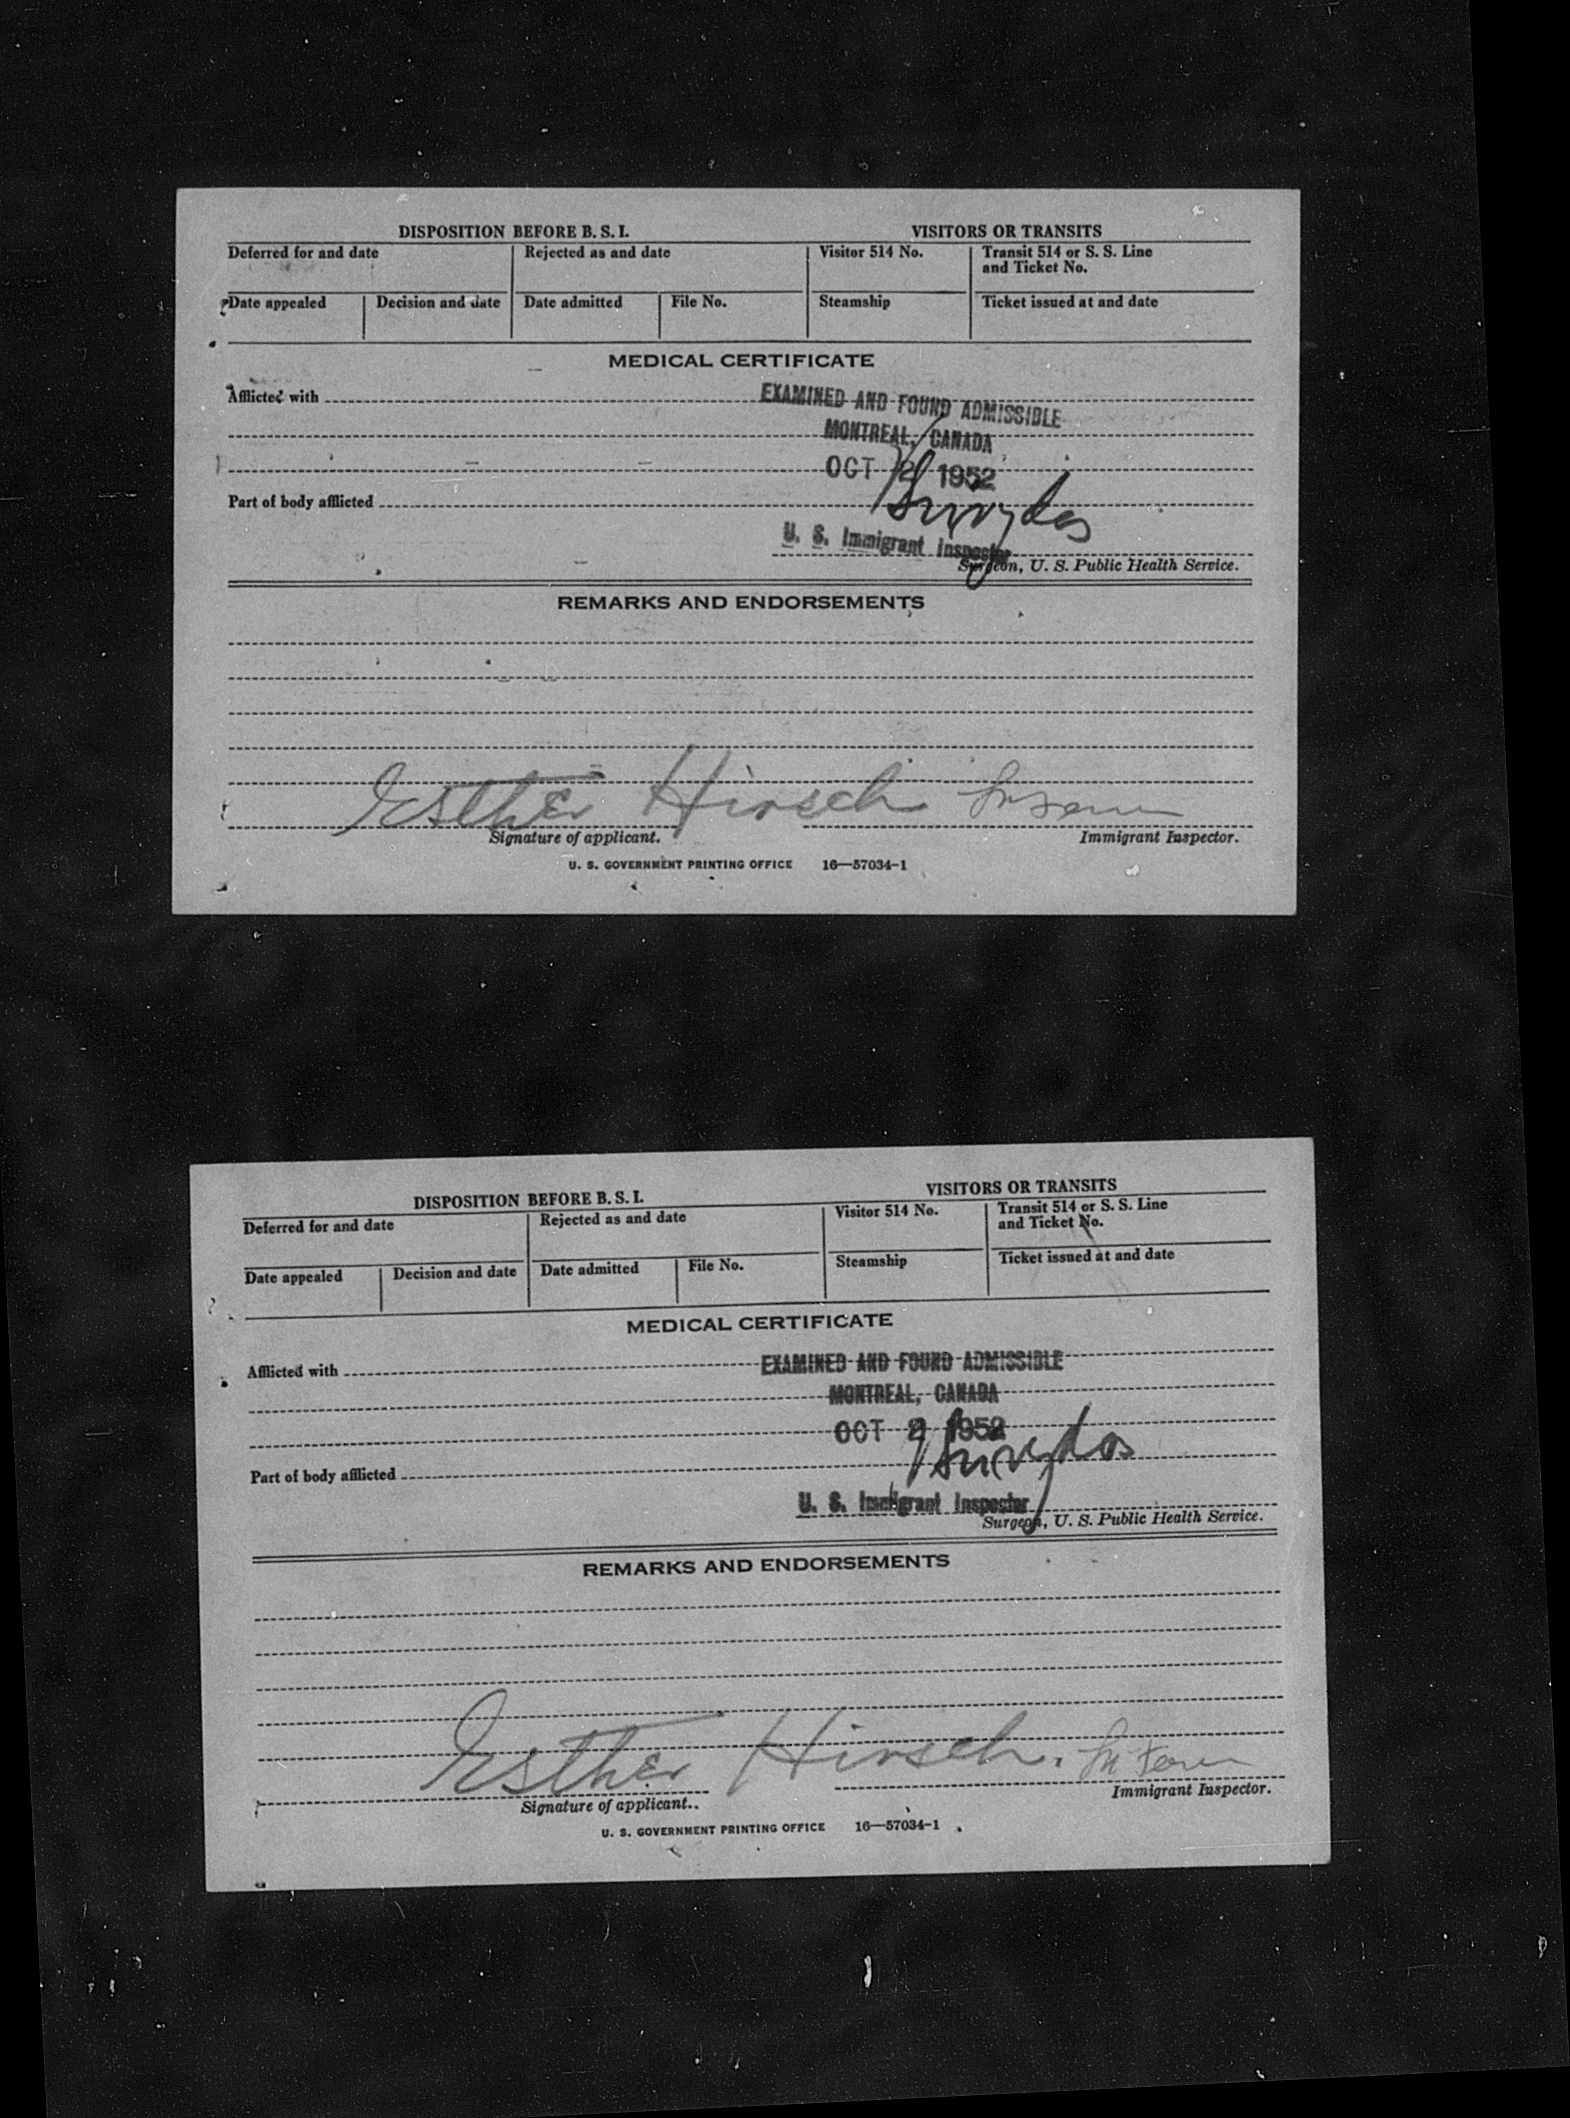 DISPOSITION BEFORE B. S. I. VISITORS OR TRANSITS
Deferred for and date Rejected as and date Visitor 514 No. Transit 514 or S. S. Line and Ticket No.
Date appealed Decision and date Date admitted File No. Steamship Ticket issued at and date
MEDICAL CERTIFICATE
Afflicted with
EXAMINED AND FOUND ADMISSIBLE
MONTREAL, CANADA
OCT 2 1952
Part of body afflicted
U. S. Immigrant Inspector
Surgeon, U. S. Public Health Service.
REMARKS AND ENDORSEMENTS
Esther Hirsch
Signature of applicant. Immigrant Inspector.
U. S. GOVERNMENT PRINTING OFFICE 16—57034-1
DISPOSITION BEFORE B. S. I. VISITORS OR TRANSITS
Deferred for and date Rejected as and date Visitor 514 No. Transit 514 or S. S. Line and Ticket No.
Date appealed Decision and date Date admitted File No. Steamship Ticket issued at and date
MEDICAL CERTIFICATE
Afflicted with
EXAMINED AND FOUND ADMISSIBLE
MONTREAL, CANADA
OCT 2 1952
Part of body afflicted
U. S. Immigrant Inspector
Surgeon, U. S. Public Health Service.
REMARKS AND ENDORSEMENTS
Esther Hirsch.
Signature of applicant. Immigrant Inspector.
U. S. GOVERNMENT PRINTING OFFICE 16—57034-1